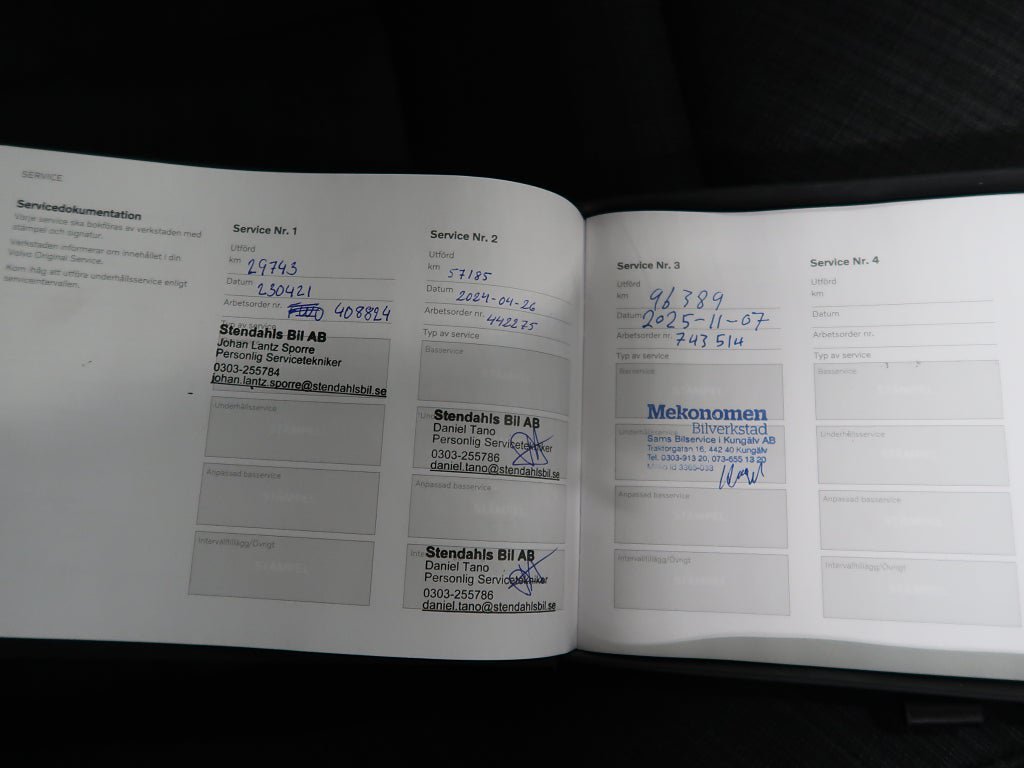 SERVICE
Servicedokumentation
Varje service ska bokföras av verkstaden med
stämpel och signatur.
Verkstaden informerar om innehållet i din
Volvo Original Service.
Kom ihåg att utföra underhållsservice enligt
serviceintervallen.
Service Nr. 1
Utförd
km 29743
Datum 230421
Arbetsorder nr. 408824
Typ av service
Stendahls Bil AB
Johan Lantz Sporre
Personlig Servicetekniker
0303-255784
johan.lantz.sporre@stendahlsbil.se
Underhållsservice
Anpassad basservice
Intervalltillägg/Övrigt
STÄMPEL
Service Nr. 2
Utförd
km 57185
Datum 2024-04-26
Arbetsorder nr. 442275
Typ av service
Basservice
Stendahls Bil AB
Daniel Tano
Personlig Servicetekniker
0303-255786
daniel.tano@stendahlsbil.se
Anpassad basservice
STÄMPEL
Stendahls Bil AB
Daniel Tano
Personlig Servicetekniker
0303-255786
daniel.tano@stendahlsbil.se
Service Nr. 3
Utförd
km 96389
Datum 2025-11-07
Arbetsorder nr. 743514
Typ av service
Basservice
Mekonomen
Bilverkstad
Underhållsservice
Sams Bilservice i Kungälv AB
Traktorgatan 16, 442 40 Kungälv
Tel. 0303-913 20, 073-655 13 20
Anpassad basservice
STÄMPEL
Intervalltillägg/Övrigt
Service Nr. 4
Utförd
km
Datum
Arbetsorder nr.
Typ av service
Basservice
Underhållsservice
Anpassad basservice
Intervalltillägg/Övrigt